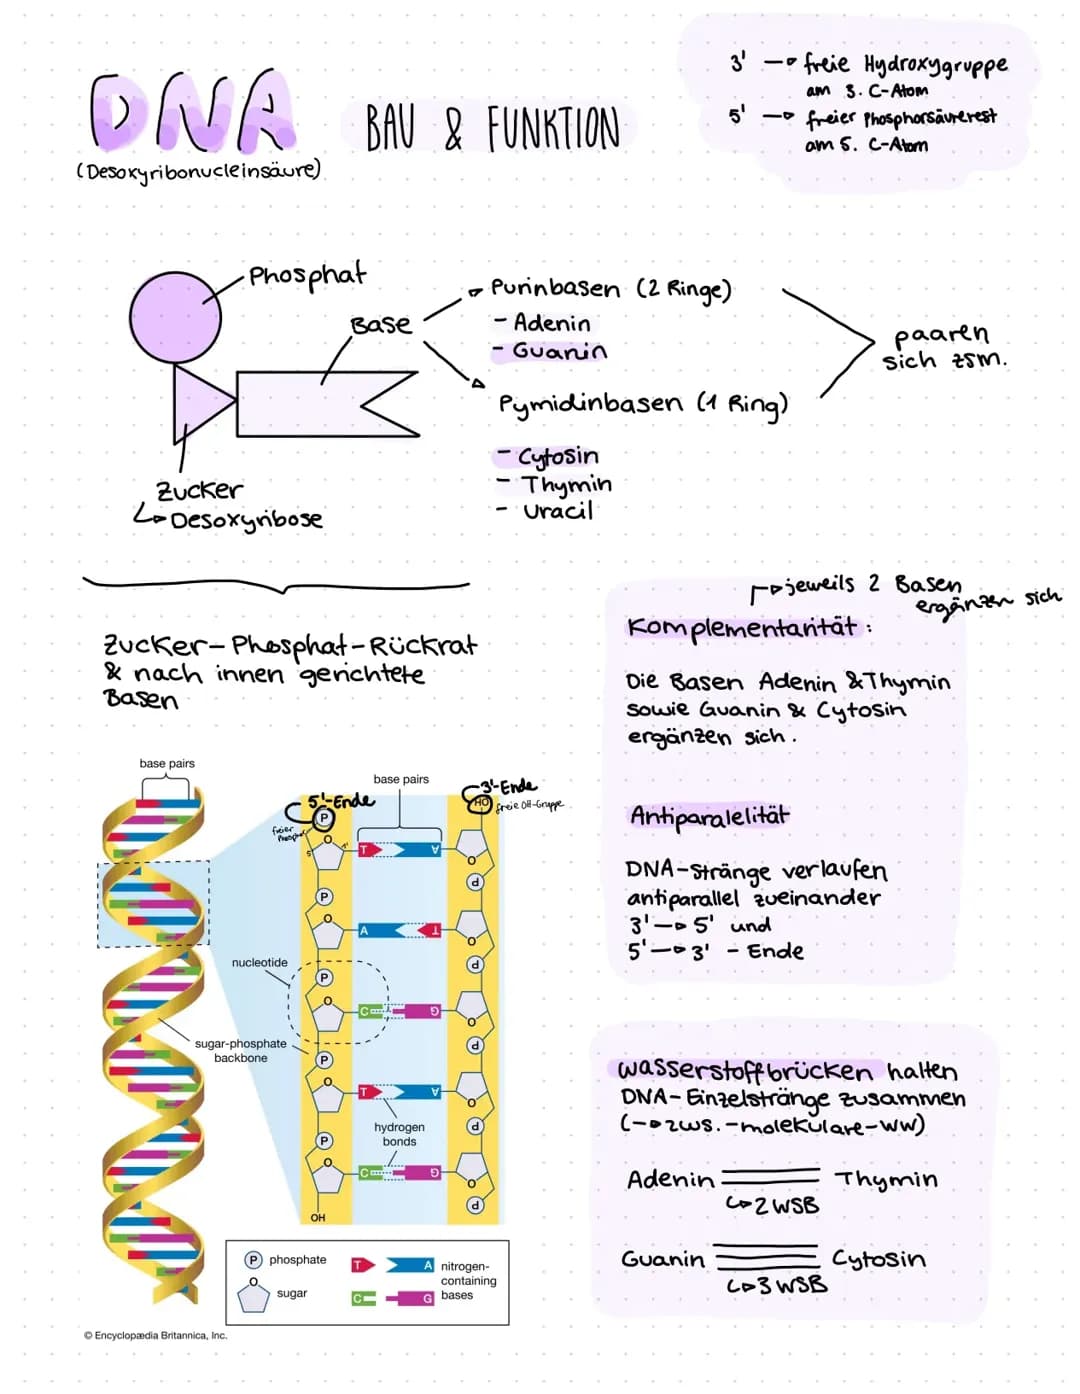 DNA
(Desoxyribonucleinsäure)
BAU & FUNKTION
3' → freie Hydroxygruppe
am 3. C-Atom
5' → freier Phosphorsäurerest
am 5. C-Atom
Phosphat
Base
Zucker
↳ Desoxyribose
Purinbasen (2 Ringe)
- Adenin
- Guanin
Pymidinbasen (1 Ring)
- Cytosin
- Thymin
- Uracil
paaren
sich zsm.
Zucker-Phosphat-Rückrat
& nach innen gerichtete
Basen
jeweils 2 Basen
ergänzen sich
Komplementarität:
Die Basen Adenin & Thymin
sowie Guanin & Cytosin
ergänzen sich.
Antiparalelität
DNA-Stränge verlaufen
antiparallel zueinander
3' → 5' und
5' → 3' - Ende
Wasserstoffbrücken halten
DNA-Einzelstränge zusammen
(→ zws.-molekulare-WW)
Adenin Thymin
↳ 2 WSB
Guanin Cytosin
↳ 3 WSB
base pairs
base pairs
5'-Ende
freier
3'-Ende
HO freie OH-Gruppe
P
O
T A
P
P
O
A T
O
P
nucleotide
P
O
C G
O
P
sugar-phosphate
backbone
P
O
T A
O
P
hydrogen
bonds
P
O
C G
O
P
OH
P phosphate
O
sugar
T A
C G
nitrogen-
containing
bases
© Encyclopædia Britannica, Inc.